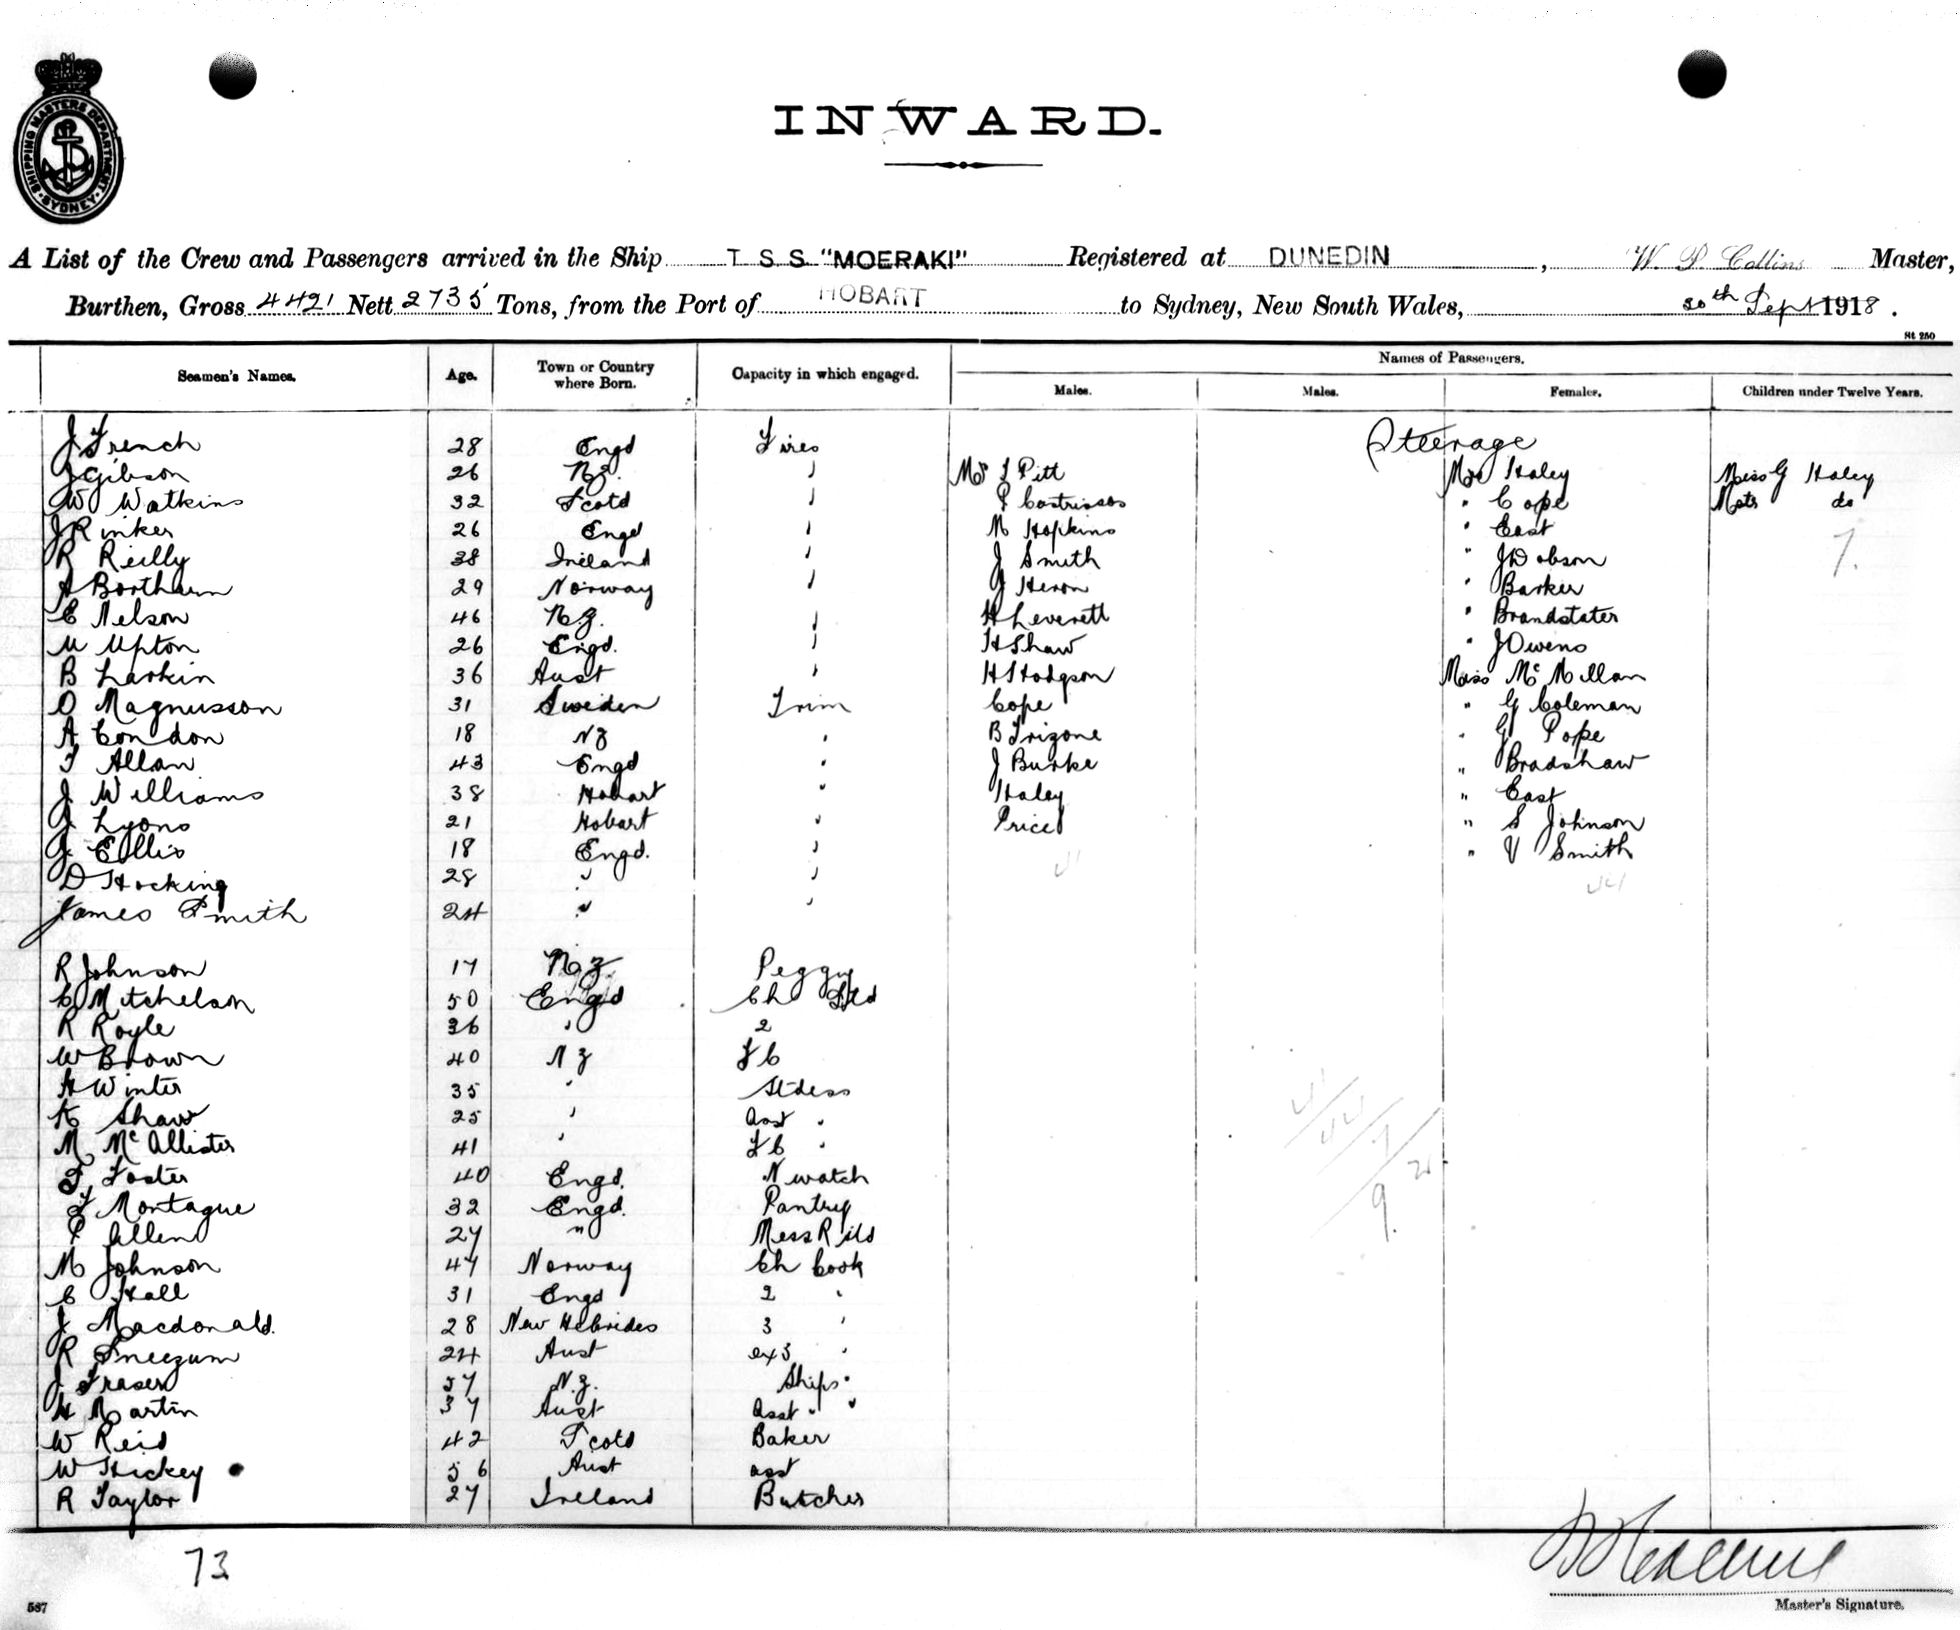 SHIPPING MASTERS DEPARTMENT
SYDNEY
INWARD.
A List of the Crew and Passengers arrived in the Ship T. S. S. "MOERAKI" Registered at DUNEDIN, W. P. Collins Master,
Burthen, Gross 4421 Nett 2735 Tons, from the Port of HOBART to Sydney, New South Wales, 30th Sept 1918.
St 250
Seamen's Names. Age. Town or Country where Born. Capacity in which engaged. Names of Passengers.
Males. Males. Females. Children under Twelve Years.
J French 28 Engd Fires Steerage
J Gibson 26 N.Z. " Mr F Pitt Mrs Haley Miss G Haley
W Watkins 32 Scotd " P Castrissos " Cope Mstr do
J Rinker 26 Engd " M Hopkins " East
R Reilly 38 Ireland " J Smith " J Dobson 7.
29 Norway " J Heron " Barker
C Nelson 46 N.Z. " H Leverett " Brandstater
M Upton 26 Engd. " H Shaw " J Owens
B Larkin 36 Aust " H Hodgson Miss McMillan
O Magnusson 31 Sweden Trim Cope " G Coleman
A Condon 18 NZ " B Trizone " G Pope
F Allan 43 Engd " J Burke " Bradshaw
J Williams 38 Hobart " Haley " East
J Lyons 21 Hobart " Price " S Johnson
J Ellis 18 Engd. " " V Smith
D Hocking 28 " "
James Smith 24 " "
R Johnson 17 N.Z Peggy
C Mitchelson 50 Engd Ch Std
R Royle 36 " 2
W Brown 40 NZ F C
H Winter 35 " Stdess
K Shaw 25 " Asst "
M McAllister 41 " F C "
F Foster 40 Engd. N watch
F Montague 32 Engd. Pantry
P Allen 27 " Mess R Std
M Johnson 47 Norway Ch Cook
C Hall 31 Engd 2 "
J Macdonald. 28 New Hebrides 3 "
R Sneezum 24 Aust ex3 "
J Fraser 57 N.Z. Ships "
H Martin 37 Aust Asst " "
W Reid 42 Scotd Baker
W Hickey 56 Aust asst
R Taylor 27 Ireland Butcher
73
587
Master's Signature.